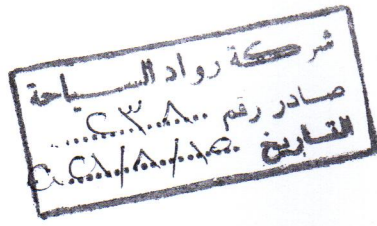 شركة رواد السياحة
صادر رقم ٢٣٨٠
التاريخ ٢٠٢١/٨/١٥